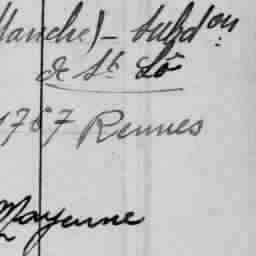 Manche) - subd.on
de St Lô
1767 Rennes
Mayenne